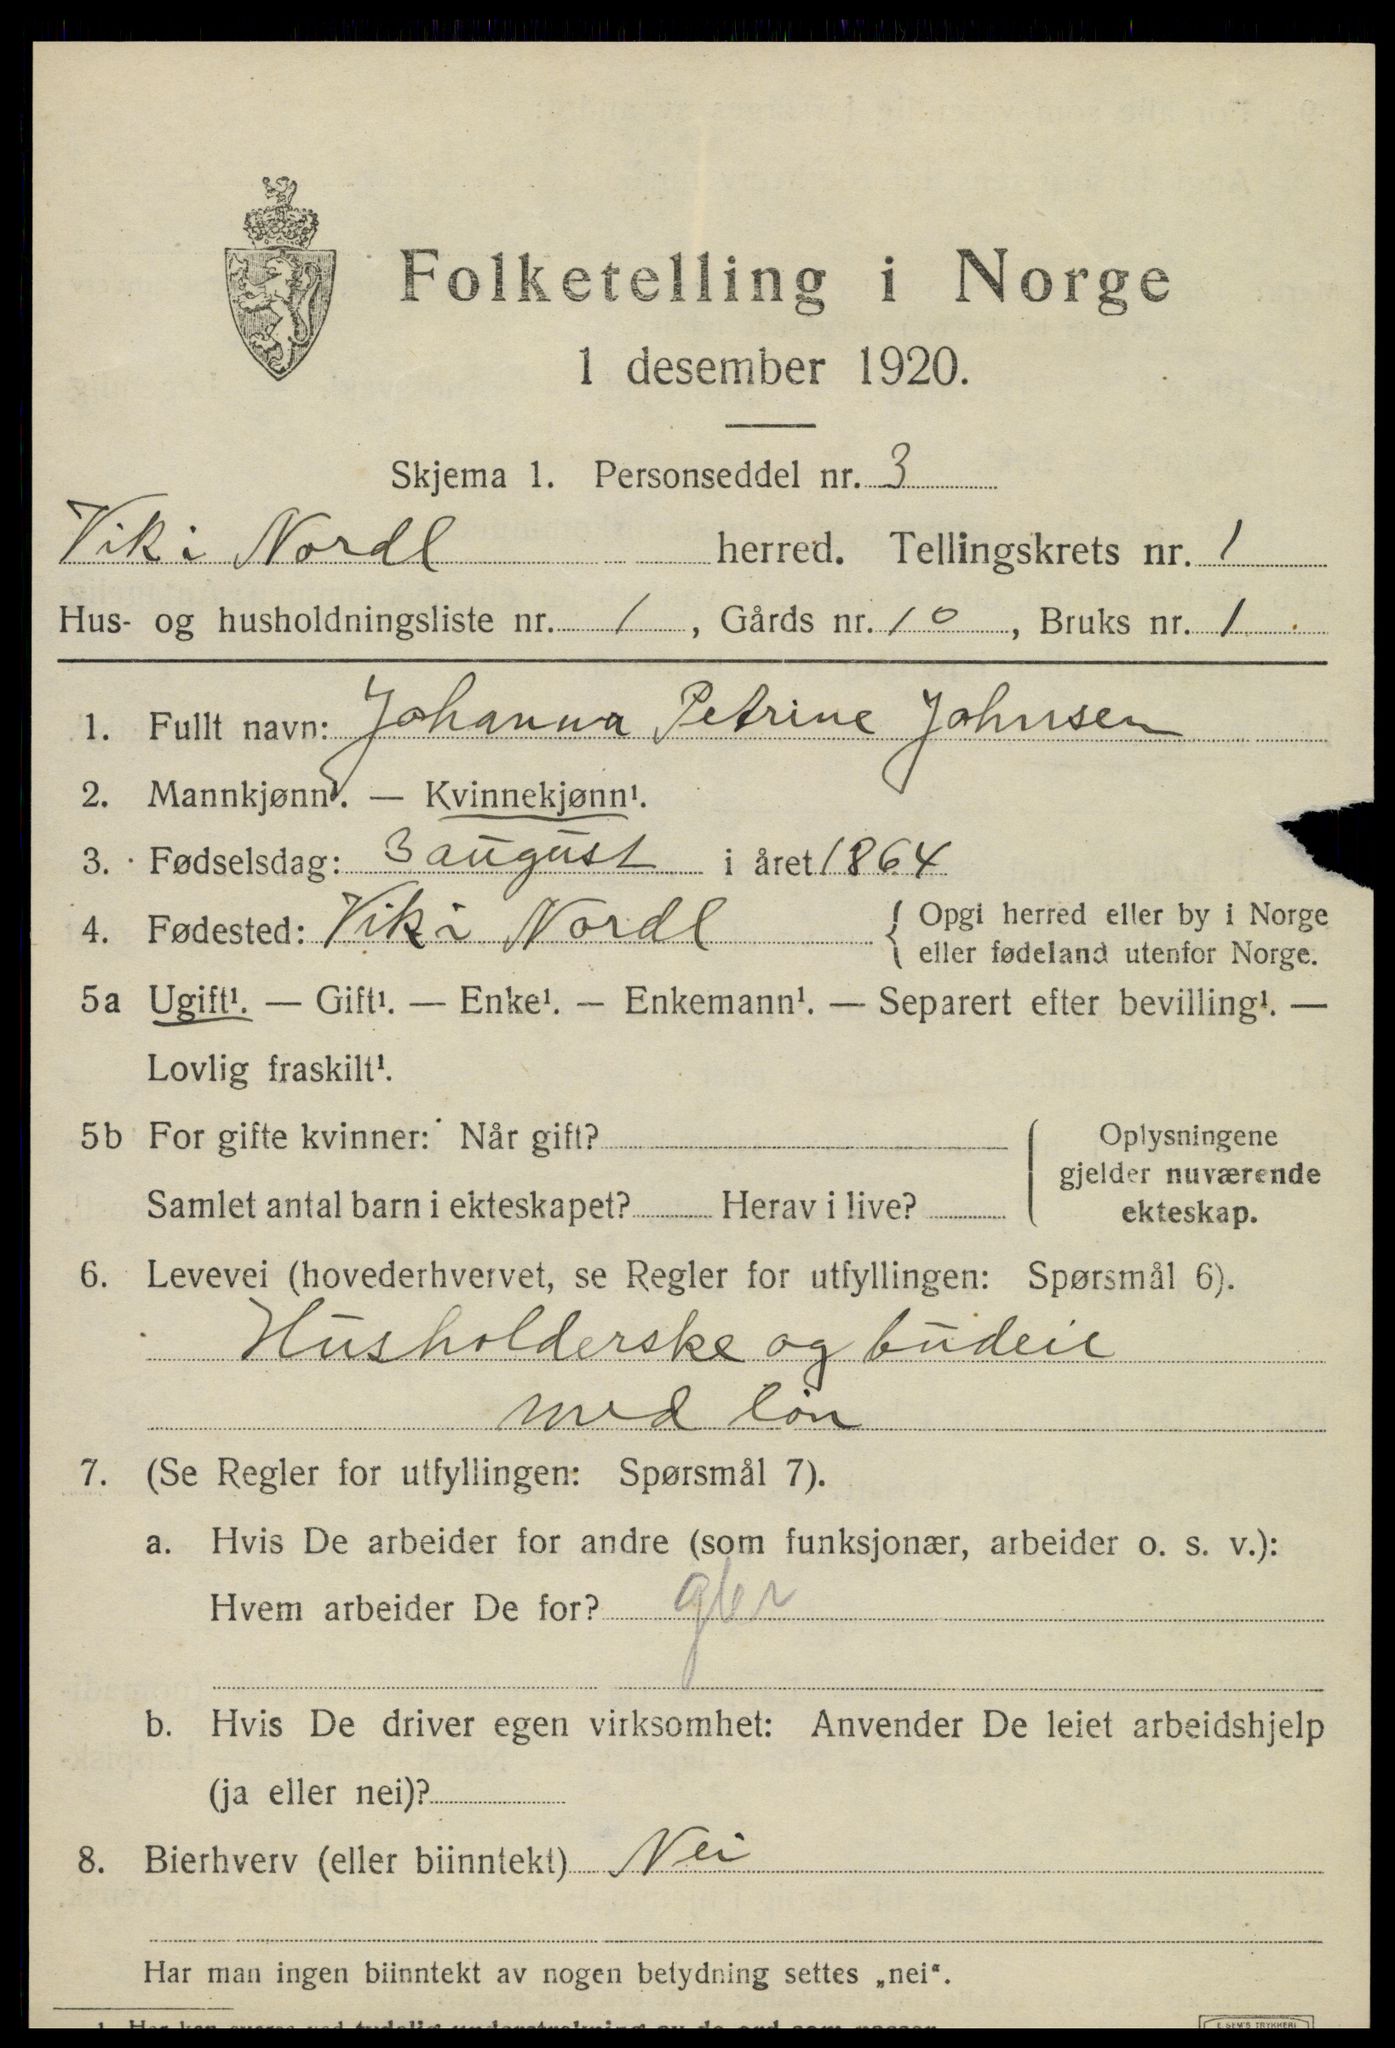 Folketelling i Norge
1 desember 1920.
Skjema 1. Personseddel nr. 3
Vik i Nordl herred. Tellingskrets nr. 1
Hus- og husholdningsliste nr. 1, Gårds nr. 10, Bruks nr. 1
1. Fullt navn: Johanna Petrine Johnsen
2. Mannkjønn¹. — Kvinnekjønn¹.
3. Fødselsdag: 3 august i året 1864
4. Fødested: Vik i Nordl { Opgi herred eller by i Norge
eller fødeland utenfor Norge.
5a Ugift¹. — Gift¹. — Enke¹. — Enkemann¹. — Separert efter bevilling¹. —
Lovlig fraskilt¹.
5b For gifte kvinner: Når gift?
Samlet antal barn i ekteskapet? Herav i live?
Oplysningene
gjelder nuværende
ekteskap.
6. Levevei (hovederhvervet, se Regler for utfyllingen: Spørsmål 6).
Husholderske og budeie
med løn
7. (Se Regler for utfyllingen: Spørsmål 7).
a. Hvis De arbeider for andre (som funksjonær, arbeider o. s. v.):
Hvem arbeider De for?
b. Hvis De driver egen virksomhet: Anvender De leiet arbeidshjelp
(ja eller nei)?
8. Bierhverv (eller biinntekt) Nei
Har man ingen biinntekt av nogen betydning settes „nei“.